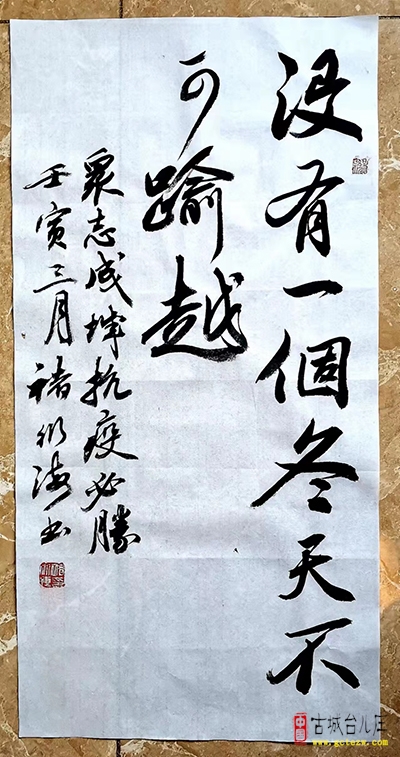 没有一個冬天不
可踰越
衆志成城抗疫必勝
壬寅三月褚衍海书
中国
古城台儿庄
www.gctezw.com